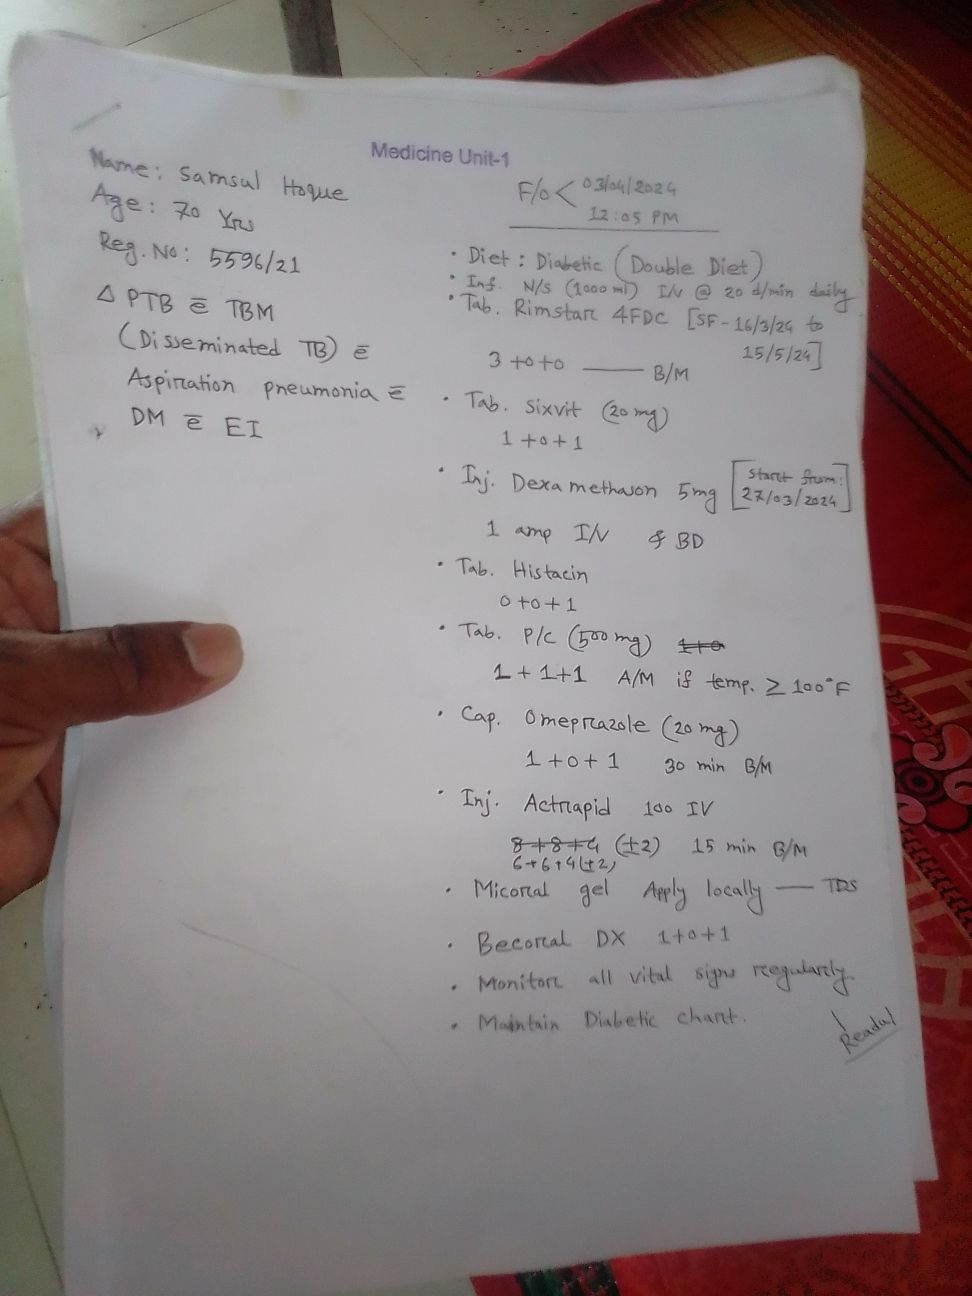 Medicine Unit-1
Name: Samsul Hoque
Age: 70 Yrs
Reg. No: 5596/21
Δ PTB c̄ TBM
(Disseminated TB) c̄
Aspiration pneumonia c̄
DM c̄ EI
F/o < 03/04/2024
12:05 PM
• Diet: Diabetic (Double Diet)
• Inf. N/S (1000 ml) I/V @ 20 d/min daily
• Tab. Rimstar 4FDC [SF-16/3/24 to
15/5/24]
3+0+0 — B/M
• Tab. Sixvit (20 mg)
1+0+1
• Inj. Dexamethason 5mg [Start from:
27/03/2024]
1 amp I/V BD
• Tab. Histacin
0+0+1
• Tab. P/C (500 mg) 1+0
1+1+1 A/M if temp. ≥ 100°F
• Cap. Omeprazole (20 mg)
1+0+1 30 min B/M
• Inj. Actrapid 100 IV
8+8+4 (±2) 15 min B/M
6+6+4(±2)
• Micoral gel Apply locally — TDS
• Becoral DX 1+0+1
• Monitor all vital signs regularly.
• Maintain Diabetic chart.